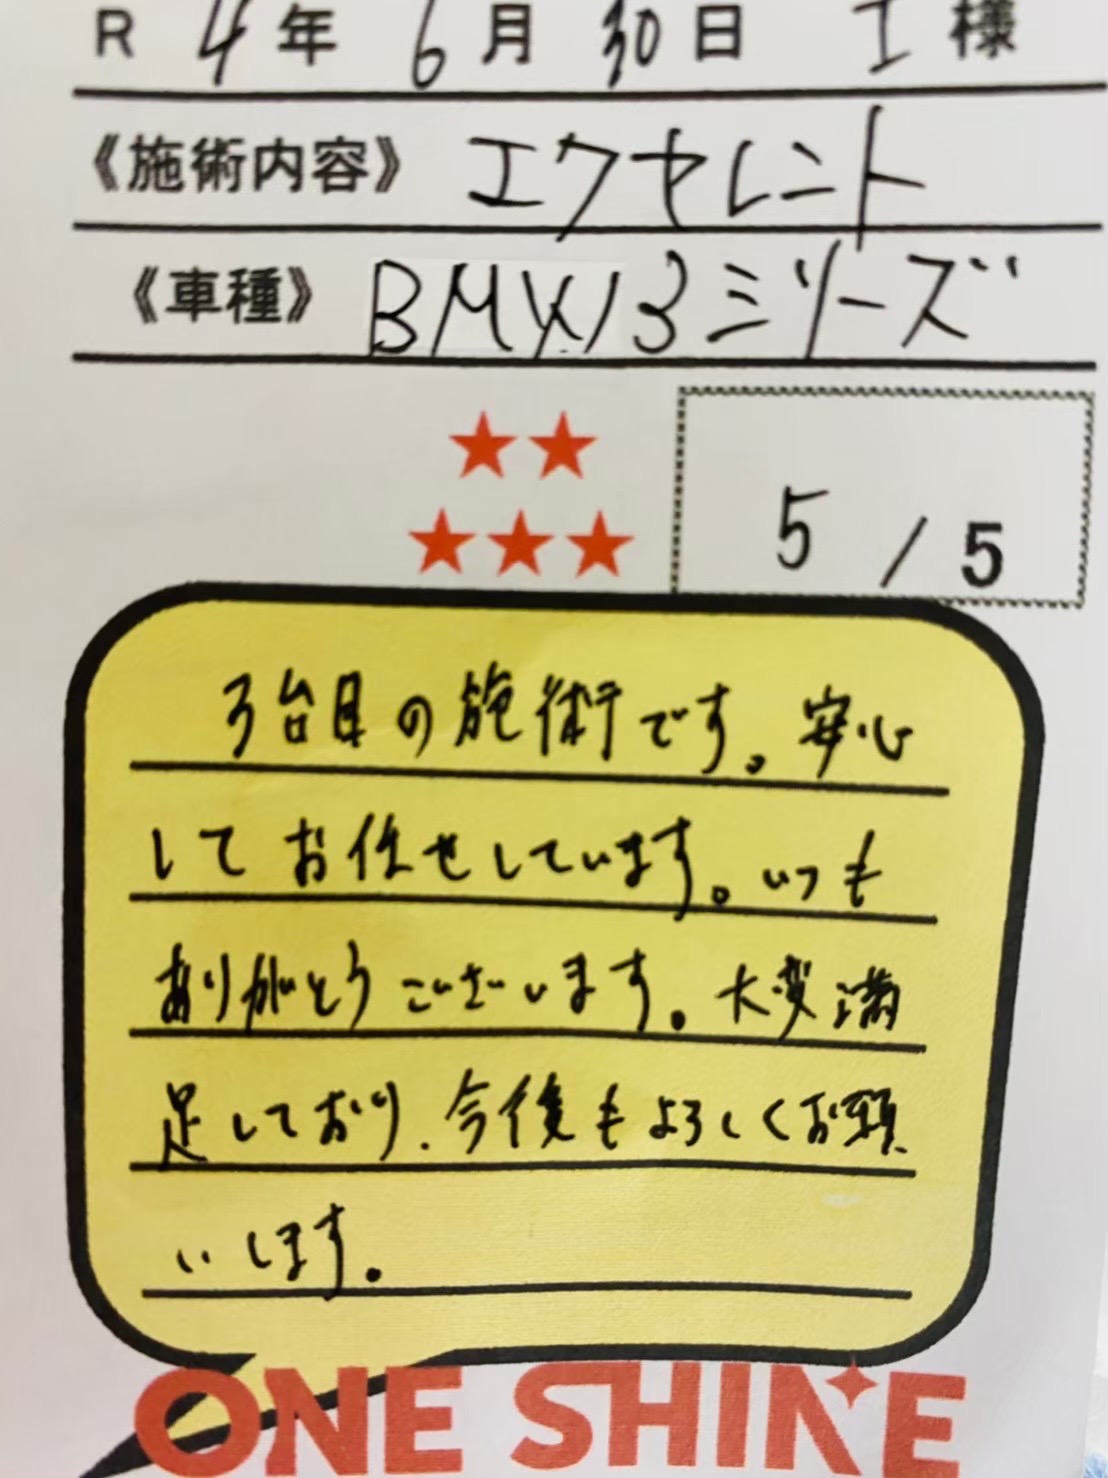 R 4年 6月 30日 I 様
《施術内容》 エクセレント
《車種》 BMW3シリーズ
5 / 5
3台目の施術です。安心
してお任せしています。いつも
ありがとうございます。大変満
足しており、今後もよろしくお願
いします。
ONE SHINE